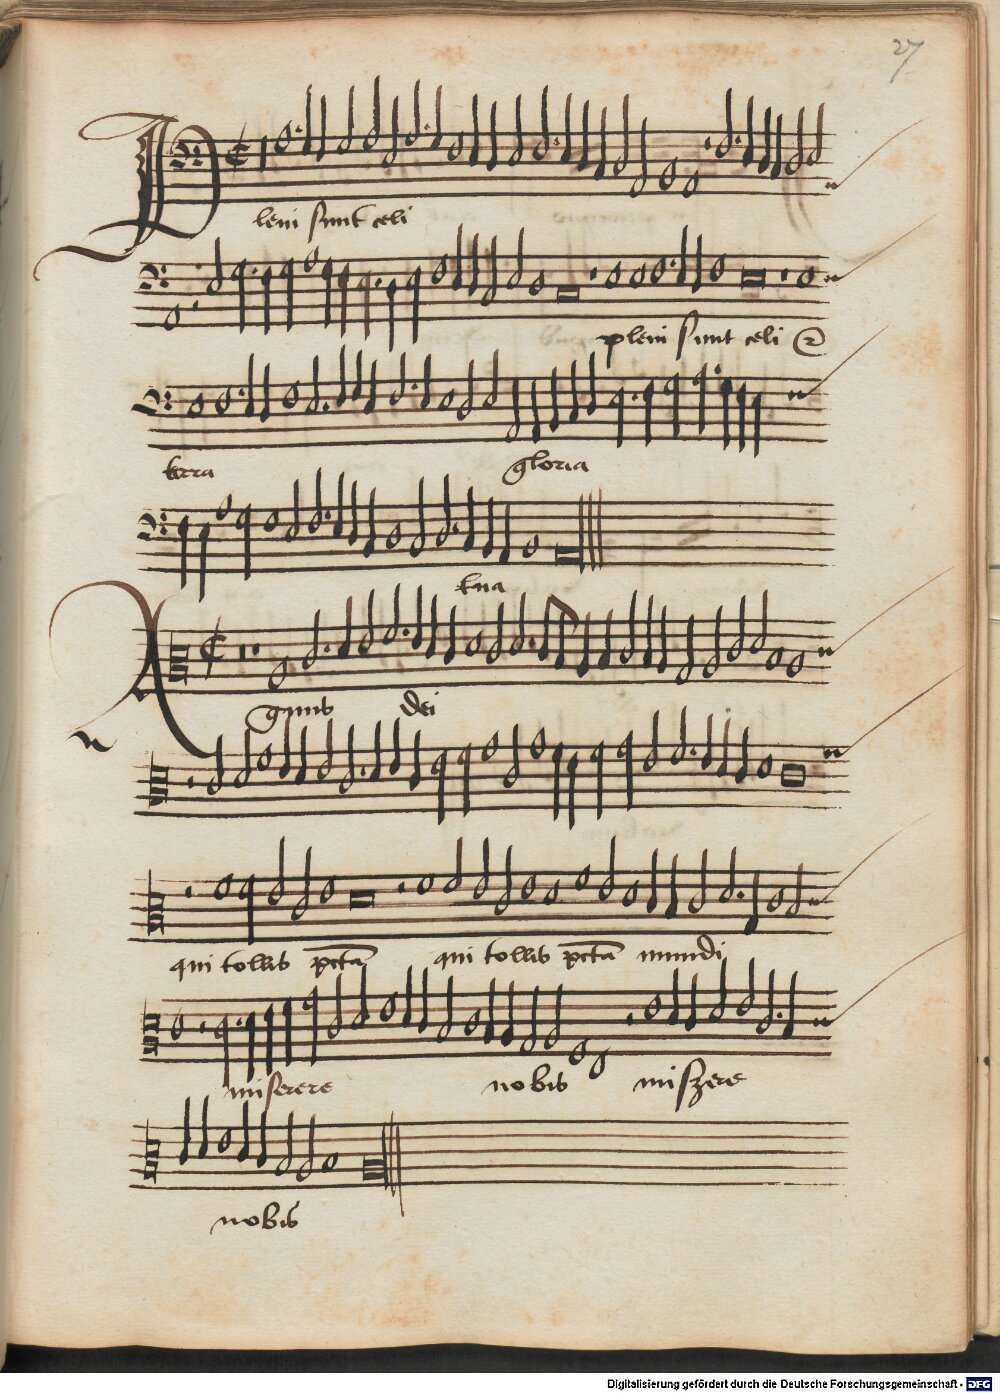 27
Pleni sunt celi
pleni sunt celi &
terra gloria
tua
Agnus dei
qui tollis pctã qui tollis pctã mundi
miserere nobis miszere
nobis
Digitalisierung gefördert durch die Deutsche Forschungsgemeinschaft - DFG